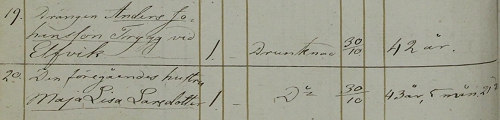 19. Drängen Anders Jo-
hansson Trygg vid
Elfvik 1. — Drunknad 30/10 42 år.
20. Den föregåendes hustru
Maja Lisa Larsdotter 1 — Do 30/10 43 år, 5 mån 21 d